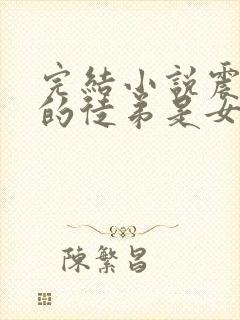 完結小説震
的徒弟是女
陳繁昌